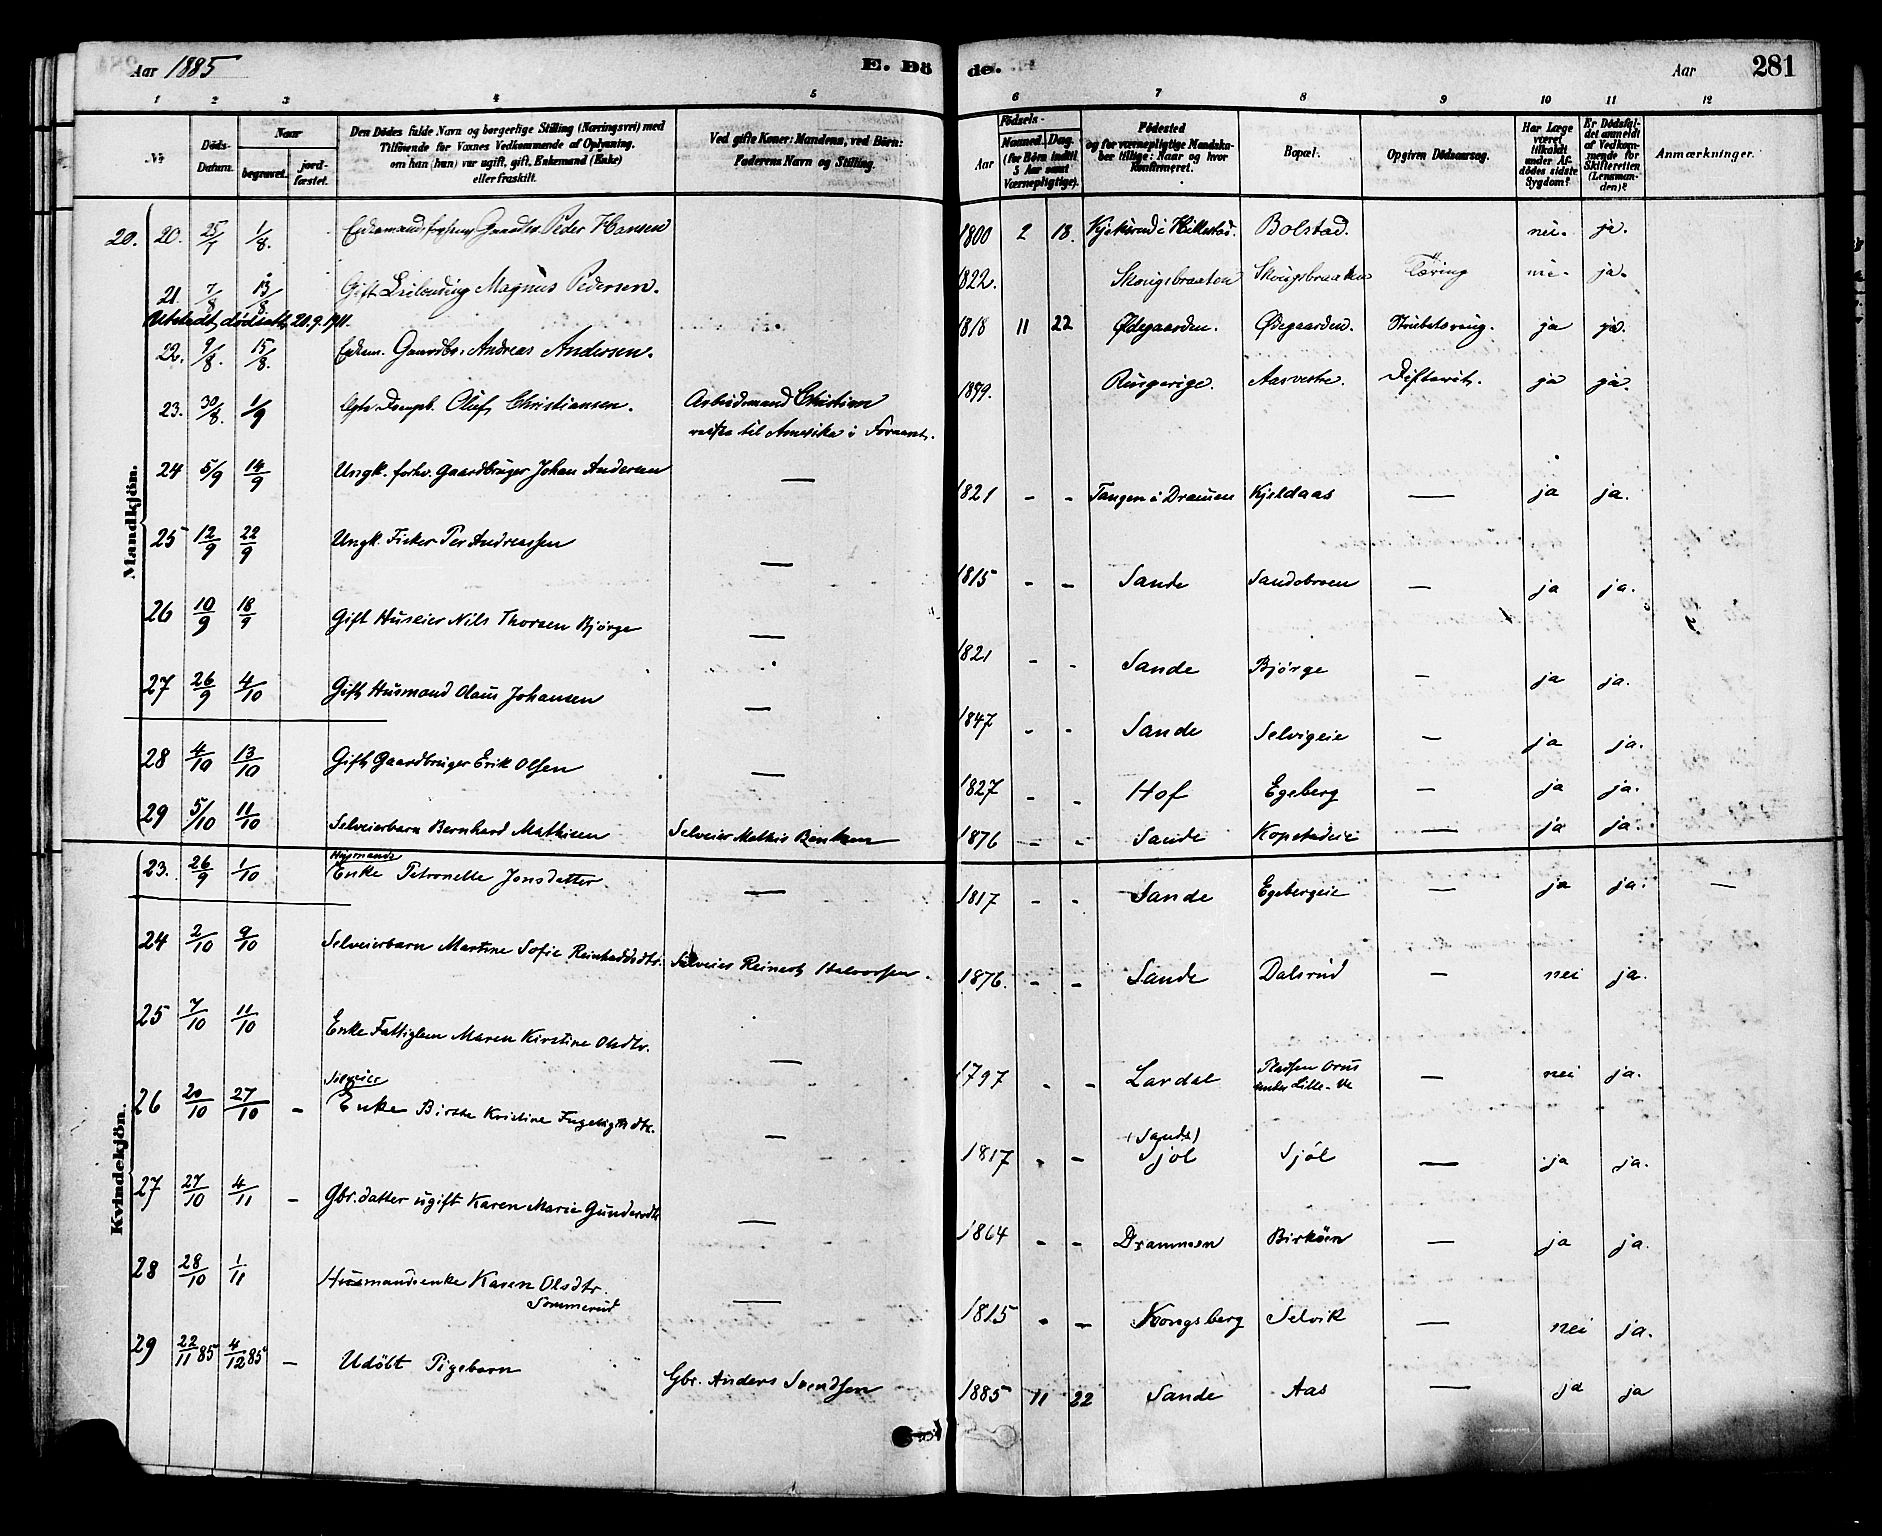 Aar 1885 E. Dö de. Aar 281
1 2 3 4 5 6 7 8 9 10 11 12
No
Döds-Datum.
Naar
begravet.
jord-fæstet.
Den Dödes fulde Navn og borgerlige Stilling (Næringsvei) med
Tilföiende for Voxnes Vedkommende af Oplysning,
om han (hun) var ugift, gift, Enkemand (Enke)
eller fraskilt.
Ved gifte Koner: Mandens, ved Börn:
Faderens Navn og Stilling.
Födsels-
Aar
Maaned. Dag.
(for Börn indtil
5 Aar samt
Værnepligtige).
Födested
og for værnepligtige Mandska-
ber tillige: Naar og hvor
Konfirmeret.
Bopæl.
Opgiven Dödsaarsag.
Har Læge
været
tilkaldt
under Af-
dödes sidste
Sygdom?
Er Dödsfal-
det anmeldt
af Vedkom-
mende for
Skifteretten
(Lensman-
den)?
Anmærkninger.
Mandkjön.
20. 20. 25/7 1/8. Enkemand Gaardbr. Peder Hansen 1800 2 18. i Hillestad. Bolstad. nei. ja.
21. 7/8 13/8 Gift Leilending Magnus Pedersen. 1822. Skougsbraaten Skougsbraaten Tæring nei. ja.
Utstedt dødsatt. 20.9.1911.
22. 9/8. 15/8. Enkem. Gaardbr. Andreas Andersen. 1818 11 22 Ødegaarden. Ødegaarden. Strubehoste. ja ja.
23. 30/8. 1/9 Oluf Christiansen. Arbeidsmand Christian 1879. Ringerige. Aasvestre. Difterit. ja ja.
reiste til Amerika i Foraaret.
24 5/9 14/9 Ungk. forhv. Gaardbruger Johan Andersen — 1821 - - Tangen i Dramen Kjeldaas — ja ja.
25 12/9 22/9 Ungk. Fisker Per Andreassen — 1815 - - Sande Sandebroen — ja ja.
26 10/9 18/9 Gift Huseier Nils Thorsen Bjørge — 1821 - - Sande Bjørge — ja ja.
27 26/9 4/10 Gift Husmand Olaus Johansen — 1847 - - Sande Selvigeie — ja ja.
28 4/10 13/10 Gift Gaardbruger Erik Olsen — 1827 - - Hof Egeberg — ja ja.
29 5/10 11/10 Selveierbarn Bernhard Mathisen Selveier Mathis 1876 - - Sande Kopstadeie — ja ja.
Kvindekjön.
Husmands
23. 26/9 1/10 Enke Petronelle Jonsdatter. — 1817 - - Sande Egebergeie — ja ja. —
24 2/10 9/10 Selveierbarn Martine Sofie Reinhardsdtr. Selveier Reinert Halvorsen. 1876. - - Sande Dalsrud — nei ja.
25 7/10 11/10 Enke Fattiglem Maren Kirstine Olsdtr. — 1797 - - Lardal Pladsen
under Lille-Ve — nei ja.
Selveier
26 20/10 27/10 - Enke Birthe Kristine — 1817 - - (Sande)
Sjøl Sjøl — ja ja.
27 27/10 4/11 - Gbr.datter ugift Karen Marie Gundersdtr — 1864 - - Drammen Birkøen — ja ja.
28 28/10 1/11 Husmandsenke Karen Olsdtr.
Sommerud — 1815 - - Kongsberg Selvik — nei ja.
29 22/11 85 4/12 85 - Udöbt Pigebarn Gbr. Anders Svendsen 1885 11 22 Sande Aas — ja ja